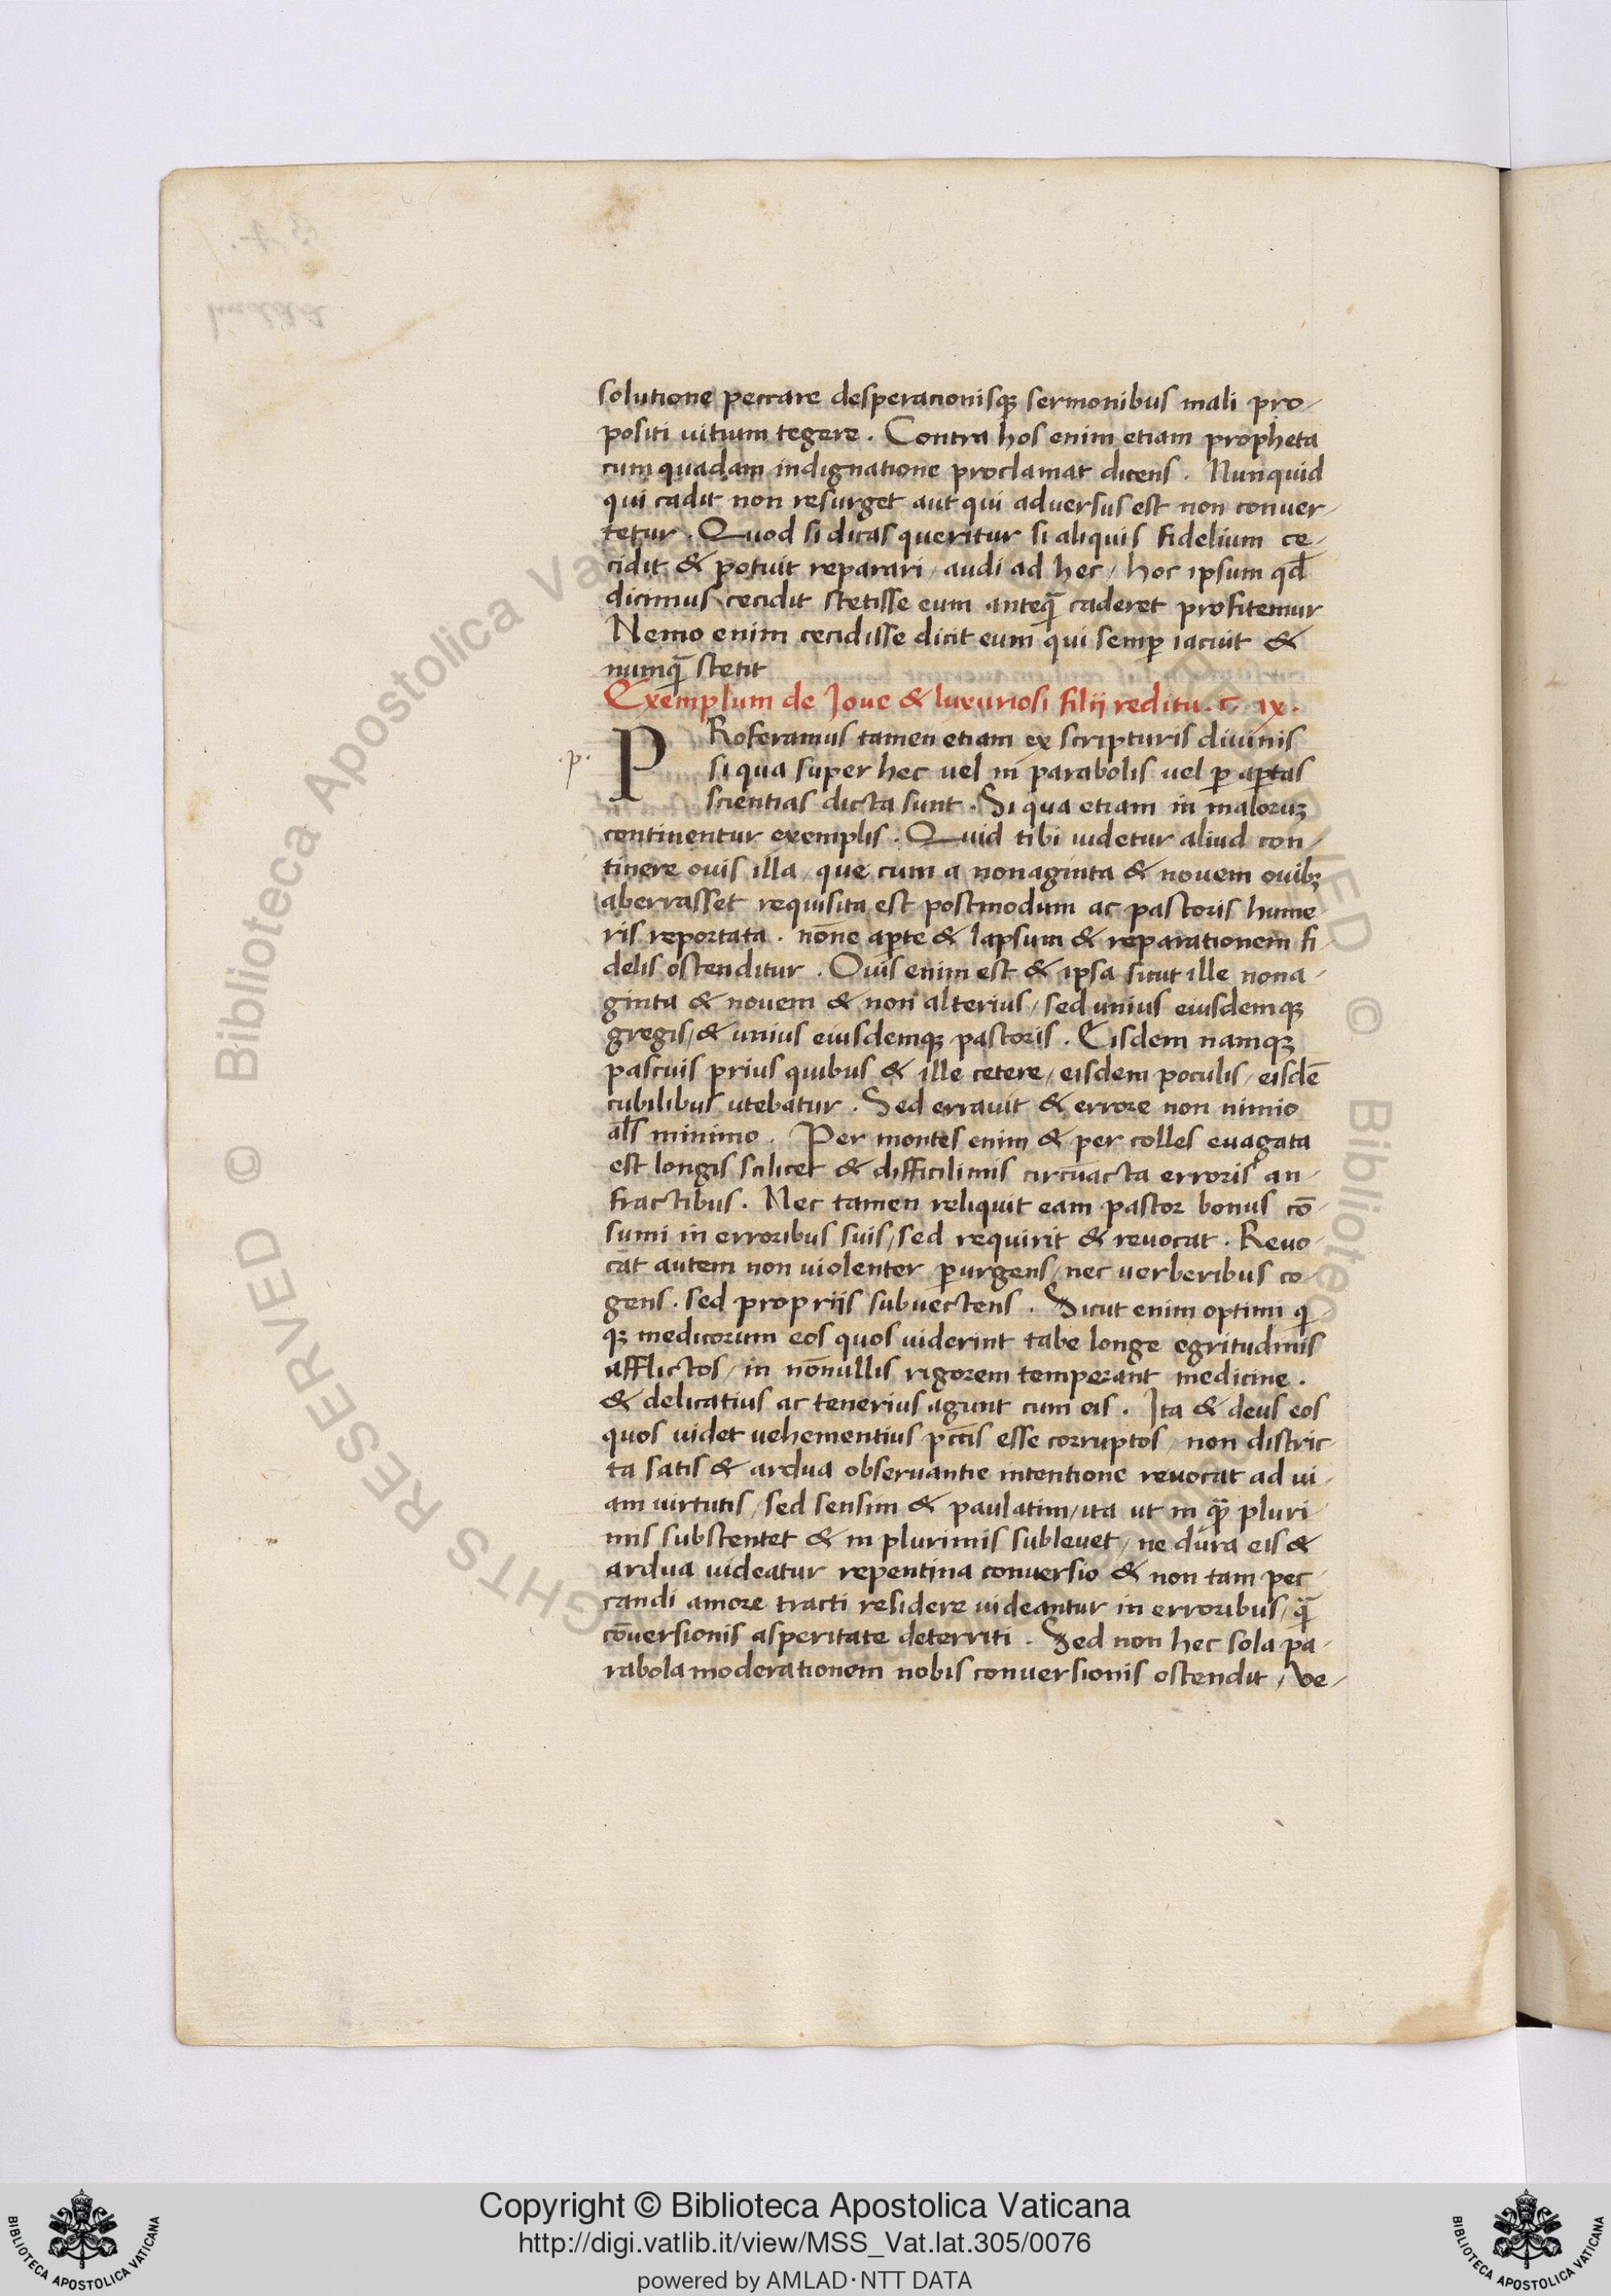 solutione peccare desperacionisqȝ sermonibus mali pro-
positi uitium tegere. Contra hos enim etiam propheta
cum quadam indignatione proclamat dicens. Nunquid
qui cadit non resurget aut qui adversus est non conver-
tetur. Quod si dicas queritur si aliquis fidelium ce-
cidit & potuit reparari / audi ad hec / hoc ipsum qđ
dicimus cecidit stetisse eum anteqꝫ̄ caderet profitemur
Nemo enim cecidisse dicit eum qui semꝑ iacuit &
numqꝫ̄ stetit
Exemplum de Joue & luxuriosi filij reditu. c. ix.
.p.
P Roferamus tamen etiam ex scripturis diuinis
si qua super hec uel in parabolis uel ꝑ aꝑtas
scientias dicta sunt. Si qua etiam in maloruȝ
continentur exemplis. Quid tibi uidetur aliud con-
tinere ouis illa / que cum a nonaginta & nouem ouibȝ
aberrasset requisita est postmodum ac pastoris hume-
ris reportata. nōne aꝑte & lapsum & reparationem fi
delis ostenditur. Ouis enim est & ipsa sicut ille nona-
ginta & nouem & non alterius / sed unius eiusdemqȝ
gregis / & unius eiusdemqȝ pastoris. Eisdem namqȝ
pascuis prius quibus & ille cetere / eisdem poculis / eisdē
cubilibus utebatur. Sed errauit & errore non nimio
als̄ minimo. Per montes enim & per colles euagata
est longis scilicet & difficilimis circūacta erroris an-
fractibus. Nec tamen reliquit eam pastor bonus cō-
sumi in erroribus suis / sed requirit & reuocat. Reuo-
cat autem non uiolenter ꝑurgens / nec uerberibus co-
gens. sed propriis subuectens. Sicut enim optimi qi
qȝ medicorum eos quos uiderint tabe longe egritudinis
afflictos / in nōnullis rigorem temperant medicine.
& delicatius ac tenerius agunt cum eis. Ita & deus eos
quos uidet uehementius pctis̄ esse corruptos / non distric-
ta satis & ardua obseruantie intentione reuocat ad ui-
am uirtutis / sed sensim & paulatim / ita ut in qꝫ̄ pluri-
mis substentet & in plurimis subleuet / ne dura eis &
ardua uideatur repentina conuersio & non tam pec-
candi amore tracti residere uideantur in erroribus / qꝫ̄
cōuersionis asperitate deterriti. Sed non hec sola pa-
rabola moderationem nobis conuersionis ostendit / ve-
Copyright © Biblioteca Apostolica Vaticana
http://digi.vatlib.it/view/MSS_Vat.lat.305/0076
powered by AMLAD·NTT DATA